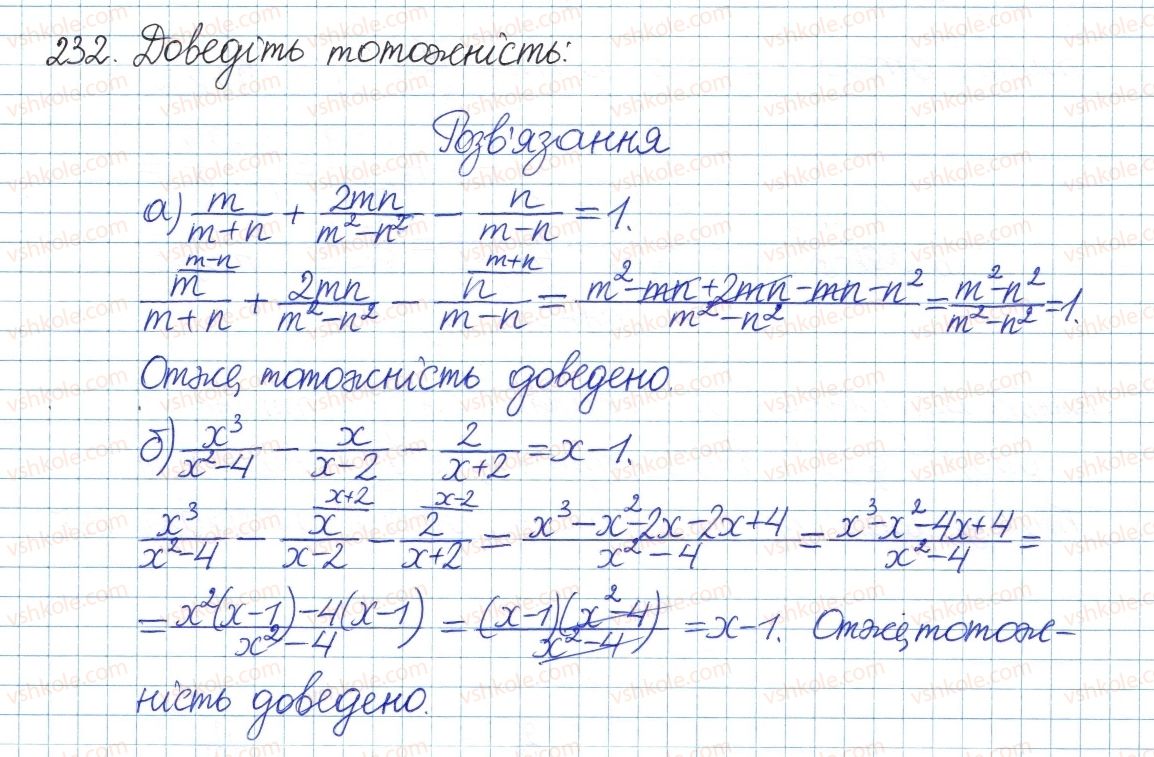 232. Доведіть тотожність:
Розв'язання
а) m/(m+n) + 2mn/(m²-n²) - n/(m-n) = 1.
m^(m-n)/(m+n) + 2mn/(m²-n²) - n^(m+n)/(m-n) = (m²-mn+2mn-mn-n²)/(m²-n²) = (m²-n²)/(m²-n²) = 1.
Отже, тотожність доведено.
б) x³/(x²-4) - x/(x-2) - 2/(x+2) = x-1.
x³/(x²-4) - x^(x+2)/(x-2) - 2^(x-2)/(x+2) = (x³-x²-2x-2x+4)/(x²-4) = (x³-x²-4x+4)/(x²-4) =
= (x²(x-1)-4(x-1))/(x²-4) = ((x-1)(x²-4))/(x²-4) = x-1. Отже, тотож-
ність доведено.